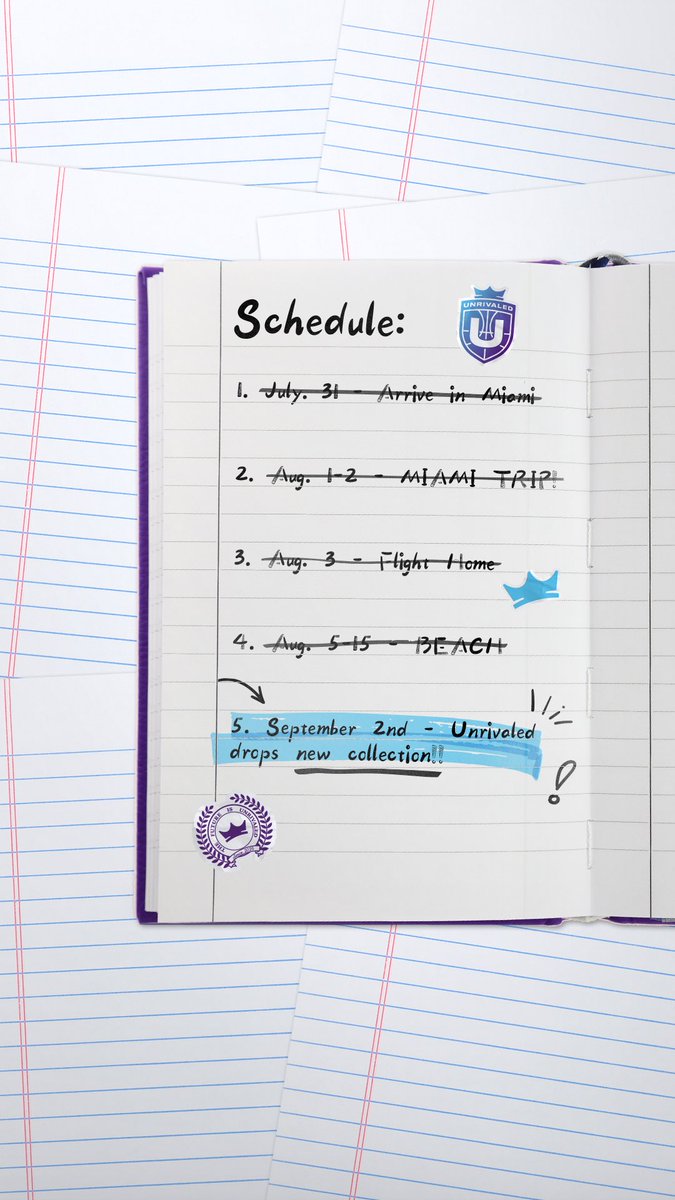 Schedule:
UNRIVALED
U
1. July. 31 - Arrive in Miami
2. Aug. 1-2 - MIAMI TRIP!
3. Aug. 3 - Flight Home
4. Aug. 5-15 - BEACH
5. September 2nd - Unrivaled
drops new collection!!
!
THE FUTURE IS UNRIVALED